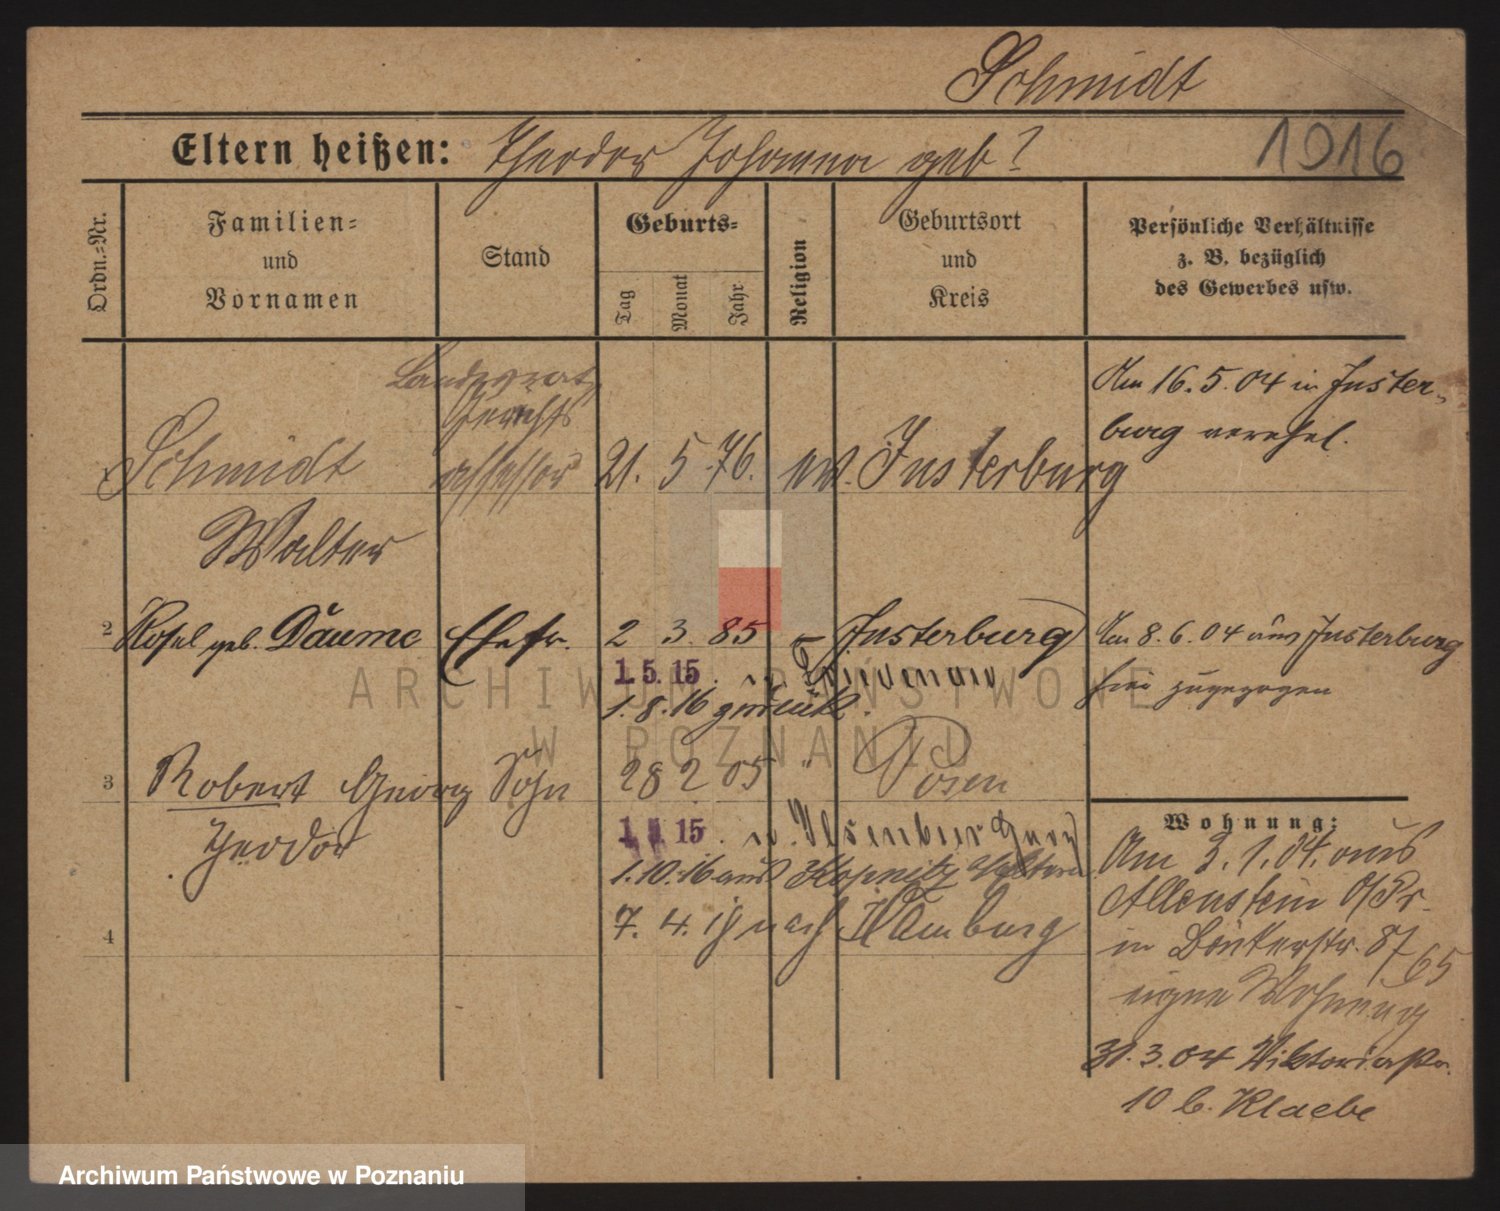 Schmidt
Eltern heißen: Theodor Johanna geb?
1916
Ordn.-Nr.
Familien-
und
Vornamen
Stand
Geburts-
Tag
Monat
Jahr
Religion
Geburtsort
und
Kreis
Persönliche Verhältnisse
z. B. bezüglich
des Gewerbes usw.
Landesrat
Gerichts
Schmidt assessor 21. 5. 76. ev. Insterburg
Walter
Am 16.5.04 in Inster-
burg verehel.
2 Rosel geb. Däume Ehefr. 2 3. 85 Insterburg
1.5.15. n. Friedenau
1.8.16 zurück.
Am 8.6.04 aus Insterburg
hier zugezogen
3 Robert Georg Sohn 28 2 05 " Posen
Theodor
15. n. Ilsenburg Harz
1.10.16 aus Kopnitz
4
7. 4. 19 nach Hamburg
Wohnung:
Am 3.1.04. aus
Allenstein O/Pr.
in 87/65
eigene Wohnung
31.3.04 Viktoriastr.
10 b. Klaebe
ARCHIWUM PAŃSTWOWE
W POZNANIU
Archiwum Państwowe w Poznaniu